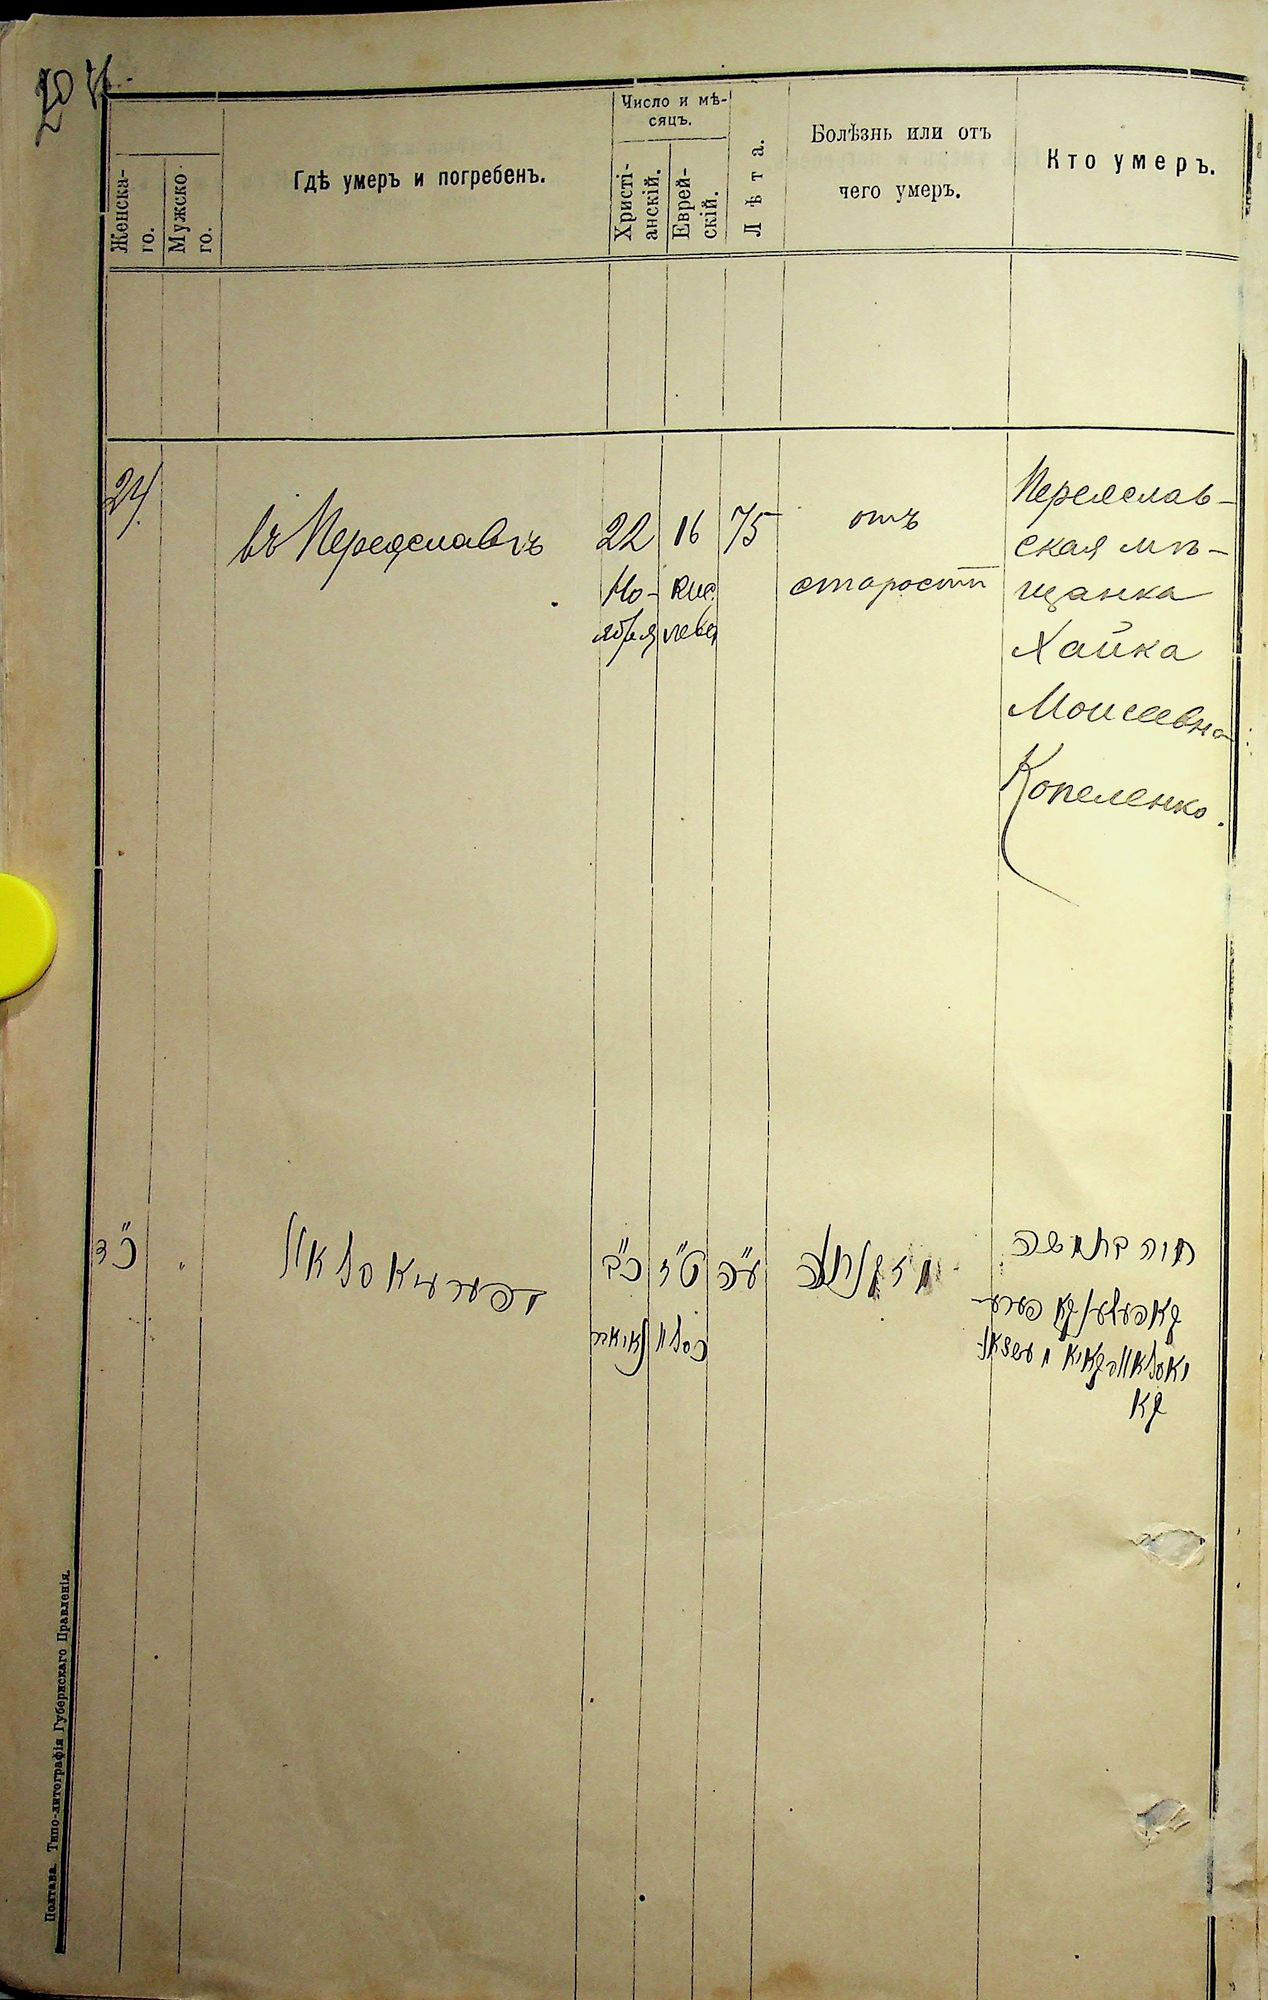 Женска-
го.
Мужско-
го.
Гдѣ умеръ и погребенъ.
Число и мѣ-
сяцъ.
Христі-
анскій.
Еврей-
скій.
Лѣта.
Болѣзнь или отъ
чего умеръ.
Кто умеръ.
24
въ Переяславѣ
22
Но-
ября
16
Кис
лева
75
отъ
старости
Переяслав-
ская мѣ-
щанка
Хайка
Моисеевна
Копеленко.
כ״ד
כ״ב
ט״ז
ע״ה
כסליו
חיה בת משה
Полтава. Типо-литографія Губернскаго Правленія.